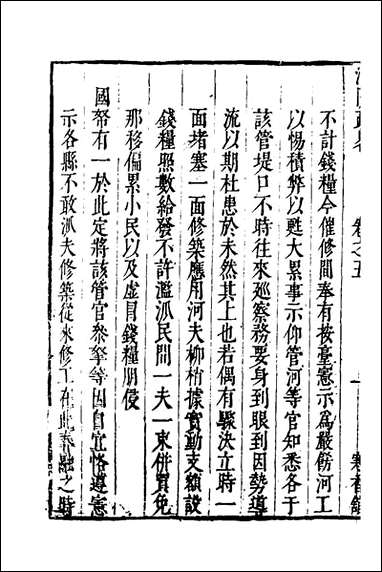 卷之五
不計錢糧今催修間奉有按臺憲示爲嚴傍河工
以惕積弊以甦大累事示仰管河等官知悉各于
該管堤口不時往來廵察務要身到眼到因勢導
流以期杜患於未然其上也若偶有驟決立時一
面堵塞一面修築應用河夫柳梢據實動支額設
錢糧照數給發不許濫派民間一夫一束併買免
那移偏累小民以及虛冒錢糧朋侵
國帑有一於此定將該管官叅拏等因自宜恪遵憲
示各縣不敢派夫修築從來修工在此春融之時